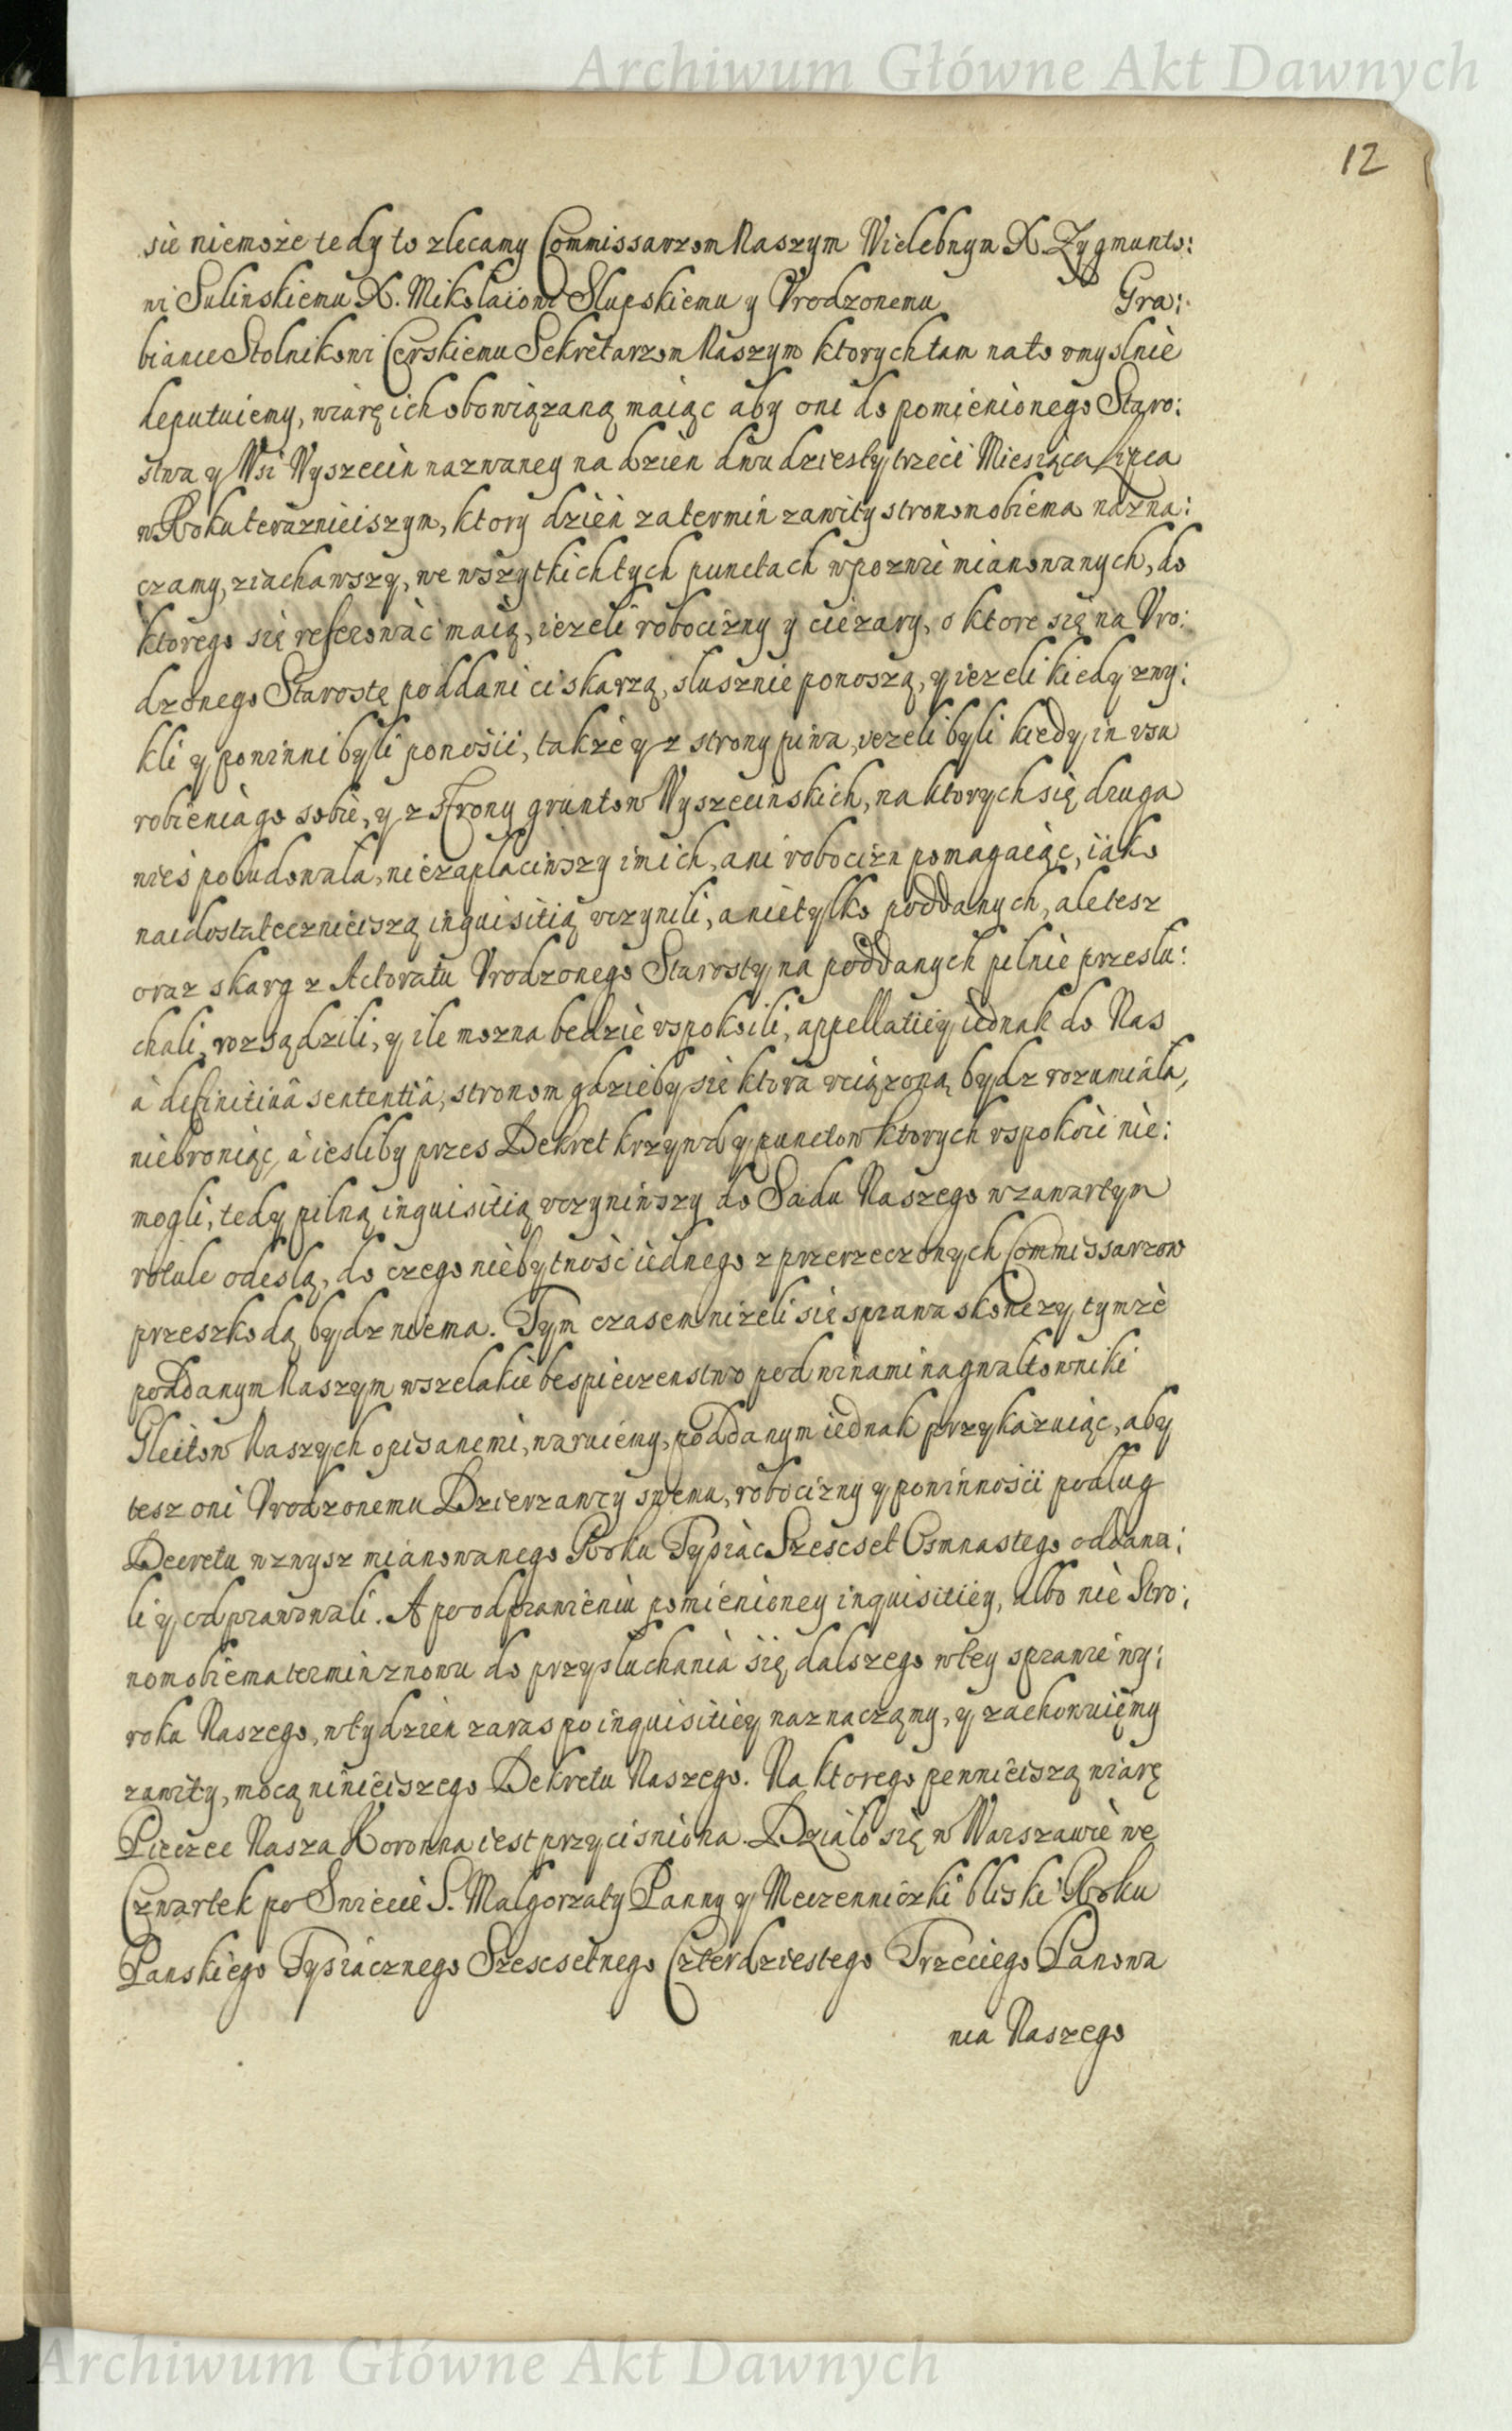 Archiwum Główne Akt Dawnych
12
sie niemoże tedy to zlecamy Commissarzom Naszym Wielebnym X. Zygmunto:
wi Sulinskiemu X. Mikołaiowi Słupskiemu y Vrodzonemu Gra:
biance Stolnikowi Cerskiemu Sekretarzom Naszym ktorych tam na to vmyslnie
deputuiemy, wiarę ich obowiązaną maiąc aby oni do pomienionego Staro:
stwa y Wsi Wyszecin nazwaney na dzien dwudziesty trzeci Miesiąca Lipca
w Roku teraznieiszym, ktory dzień za termin zawity stronom obiema nazna:
czamy, ziachawszy, we wszytkich tych punctach w pozwie mianowanych, do
ktorego się referować maią, iezeli robocizny y ciężary, o ktore się na Vro:
dzonego Starostę poddani ci skarzą, slusznie ponoszą, y iezeli kiedy zwy:
kli y powinni byli ponosic, takze y z strony piwa, iezeli byli kiedy in vsu
robienia go sobie, y z strony gruntow Wyszecinskich, na ktorych się druga
wieś pobudowala, niezaplaciwszy im ich, ani robocizn pomagaiąc, iako
naidostatecznieiszą inquisitią vczynili, a nietylko poddanych, ale tesz
oraz skarg z Actoratu Vrodzonego Starosty na poddanych pilnie przeslu:
chali, rozsądzili, y ile mozna bedzie vspokoili, appellatiey iednak do Nas
à definitiuâ sententiâ, stronom gdzieby sie ktora vciązoną bydz rozumiala,
niebroniąc, à iesliby przes Dekret krzywd y punctow ktorych vspokoic nie:
mogli, tedy pilną inquisitią vczyniwszy do Sądu Naszego w zawartym
rotule odeslą, do czego niebytność iednego z przerzeczonych Commissarzow
przeszkodą bydz niema. Tym czasem nizeli sie sprawa skonczy tymze
poddanym Naszym wszelakie bespieczenstwo pod winami na gwałtowniki
Gleitow Naszych opisanemi, waruiemy, poddanym iednak przykazuiąc, aby
tesz oni Vrodzonemu Dzierzawcy swemu, robocizny y powinnosci podlug
Decretu wznysz mianowanego Roku Tysiąc Szescset Osmnastego oddawa:
li y odprawowali. A po odprawieniu pomienioney inquisitiey, albo nie Stro:
nom obiema termin znowu do przysluchania się dalszego w tey sprawie wy:
roku Naszego, w tydzien zaras po inquisitiey naznaczamy, y zachowuiemy
zawity, mocą ninieiszego Dekretu Naszego. Na ktorego pewnieiszą wiarę
Pieczec Nasza Koronna iest przycisniona. Działo się w Warszawie we
Czwartek po Swiecie S. Malgorzaty Panny y Meczenniczki bliski Roku
Panskiego Tysiącznego Szescsetnego Czterdziestego Trzeciego Panowa
nia Naszego
Archiwum Główne Akt Dawnych